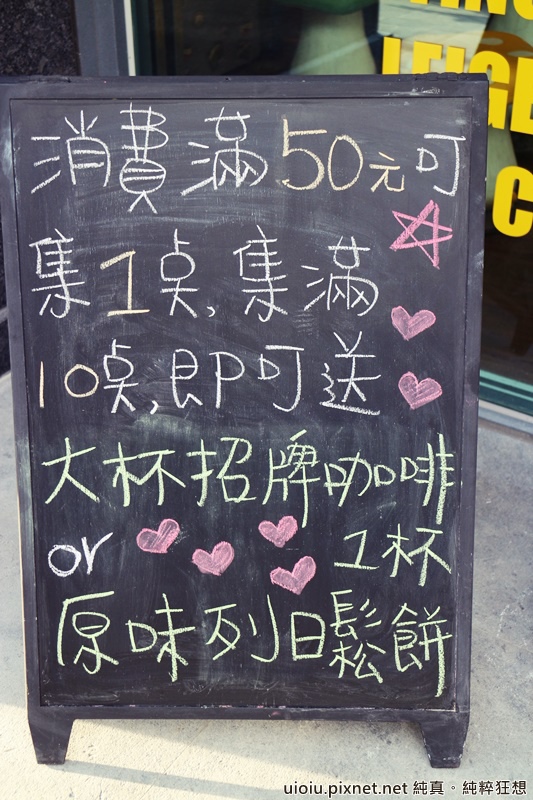 消費滿50元可
集1点,集滿
10点,即可送
大杯招牌咖啡
or 1杯
原味列日鬆餅
LEIGE
C
uioiu.pixnet.net 純真。純粹狂想